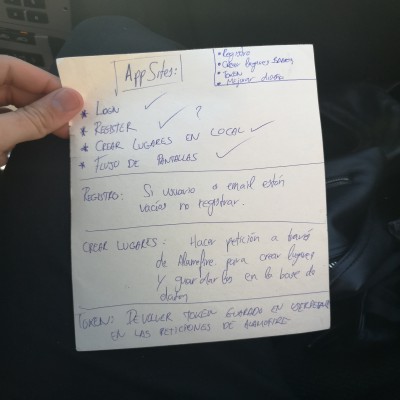 AppSites:
• Registro
• Crear lugares
• Token
• Mejorar diseño
* Login ✓
* Register ✓ ?
* Crear lugares en local ✓
* Flujo de pantallas ✓
Registro: Si usuario o email están
vacías no registrar.
Crear lugares: Hacer petición a través
de Alamofire para crear lugares
y guardarlos en la base de
datos
Token: Devolver token guardado en
en las peticiones de Alamofire